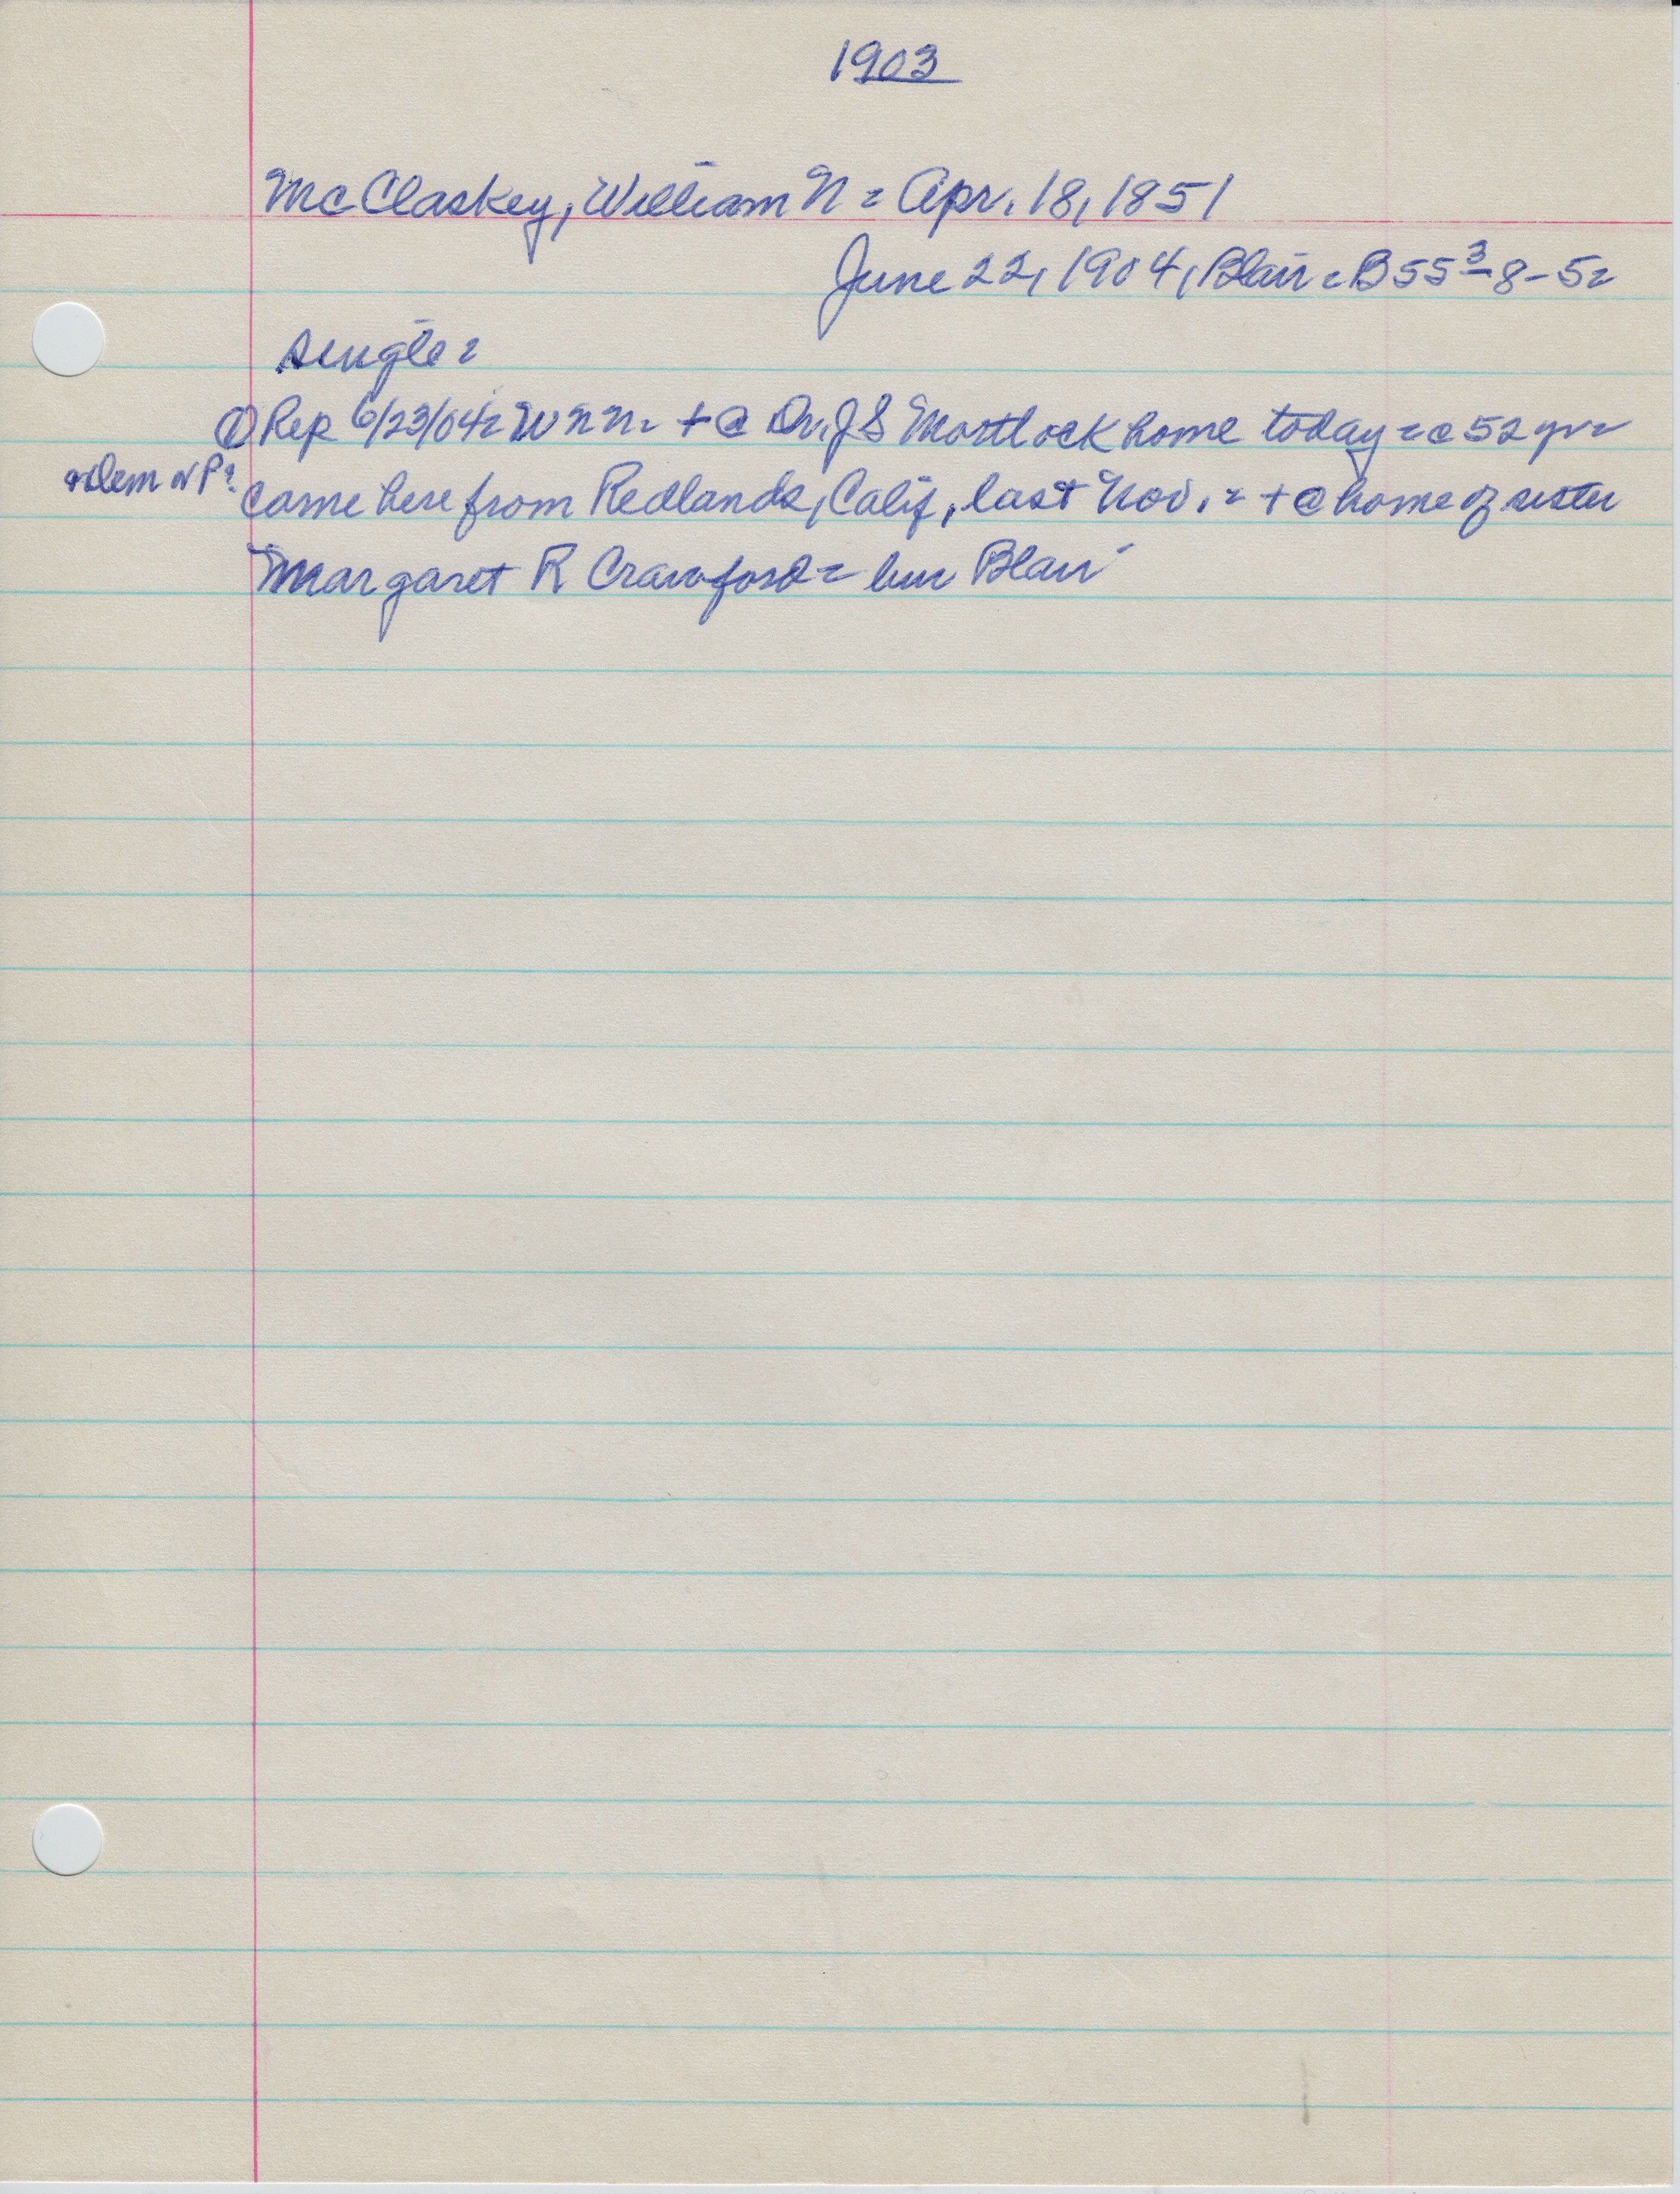 1903
McClaskey, William N = Apr. 18, 1851
June 22, 1904, Blair = B55 3-8-5=
single =
① Rep 6/23/04= W N M. + @ Dr. J S Mortlock home today = @ 52 yr =
came here from Redlands, Calif, last Nov. = + @ home of sister
Margaret R Crawford = bur Blair